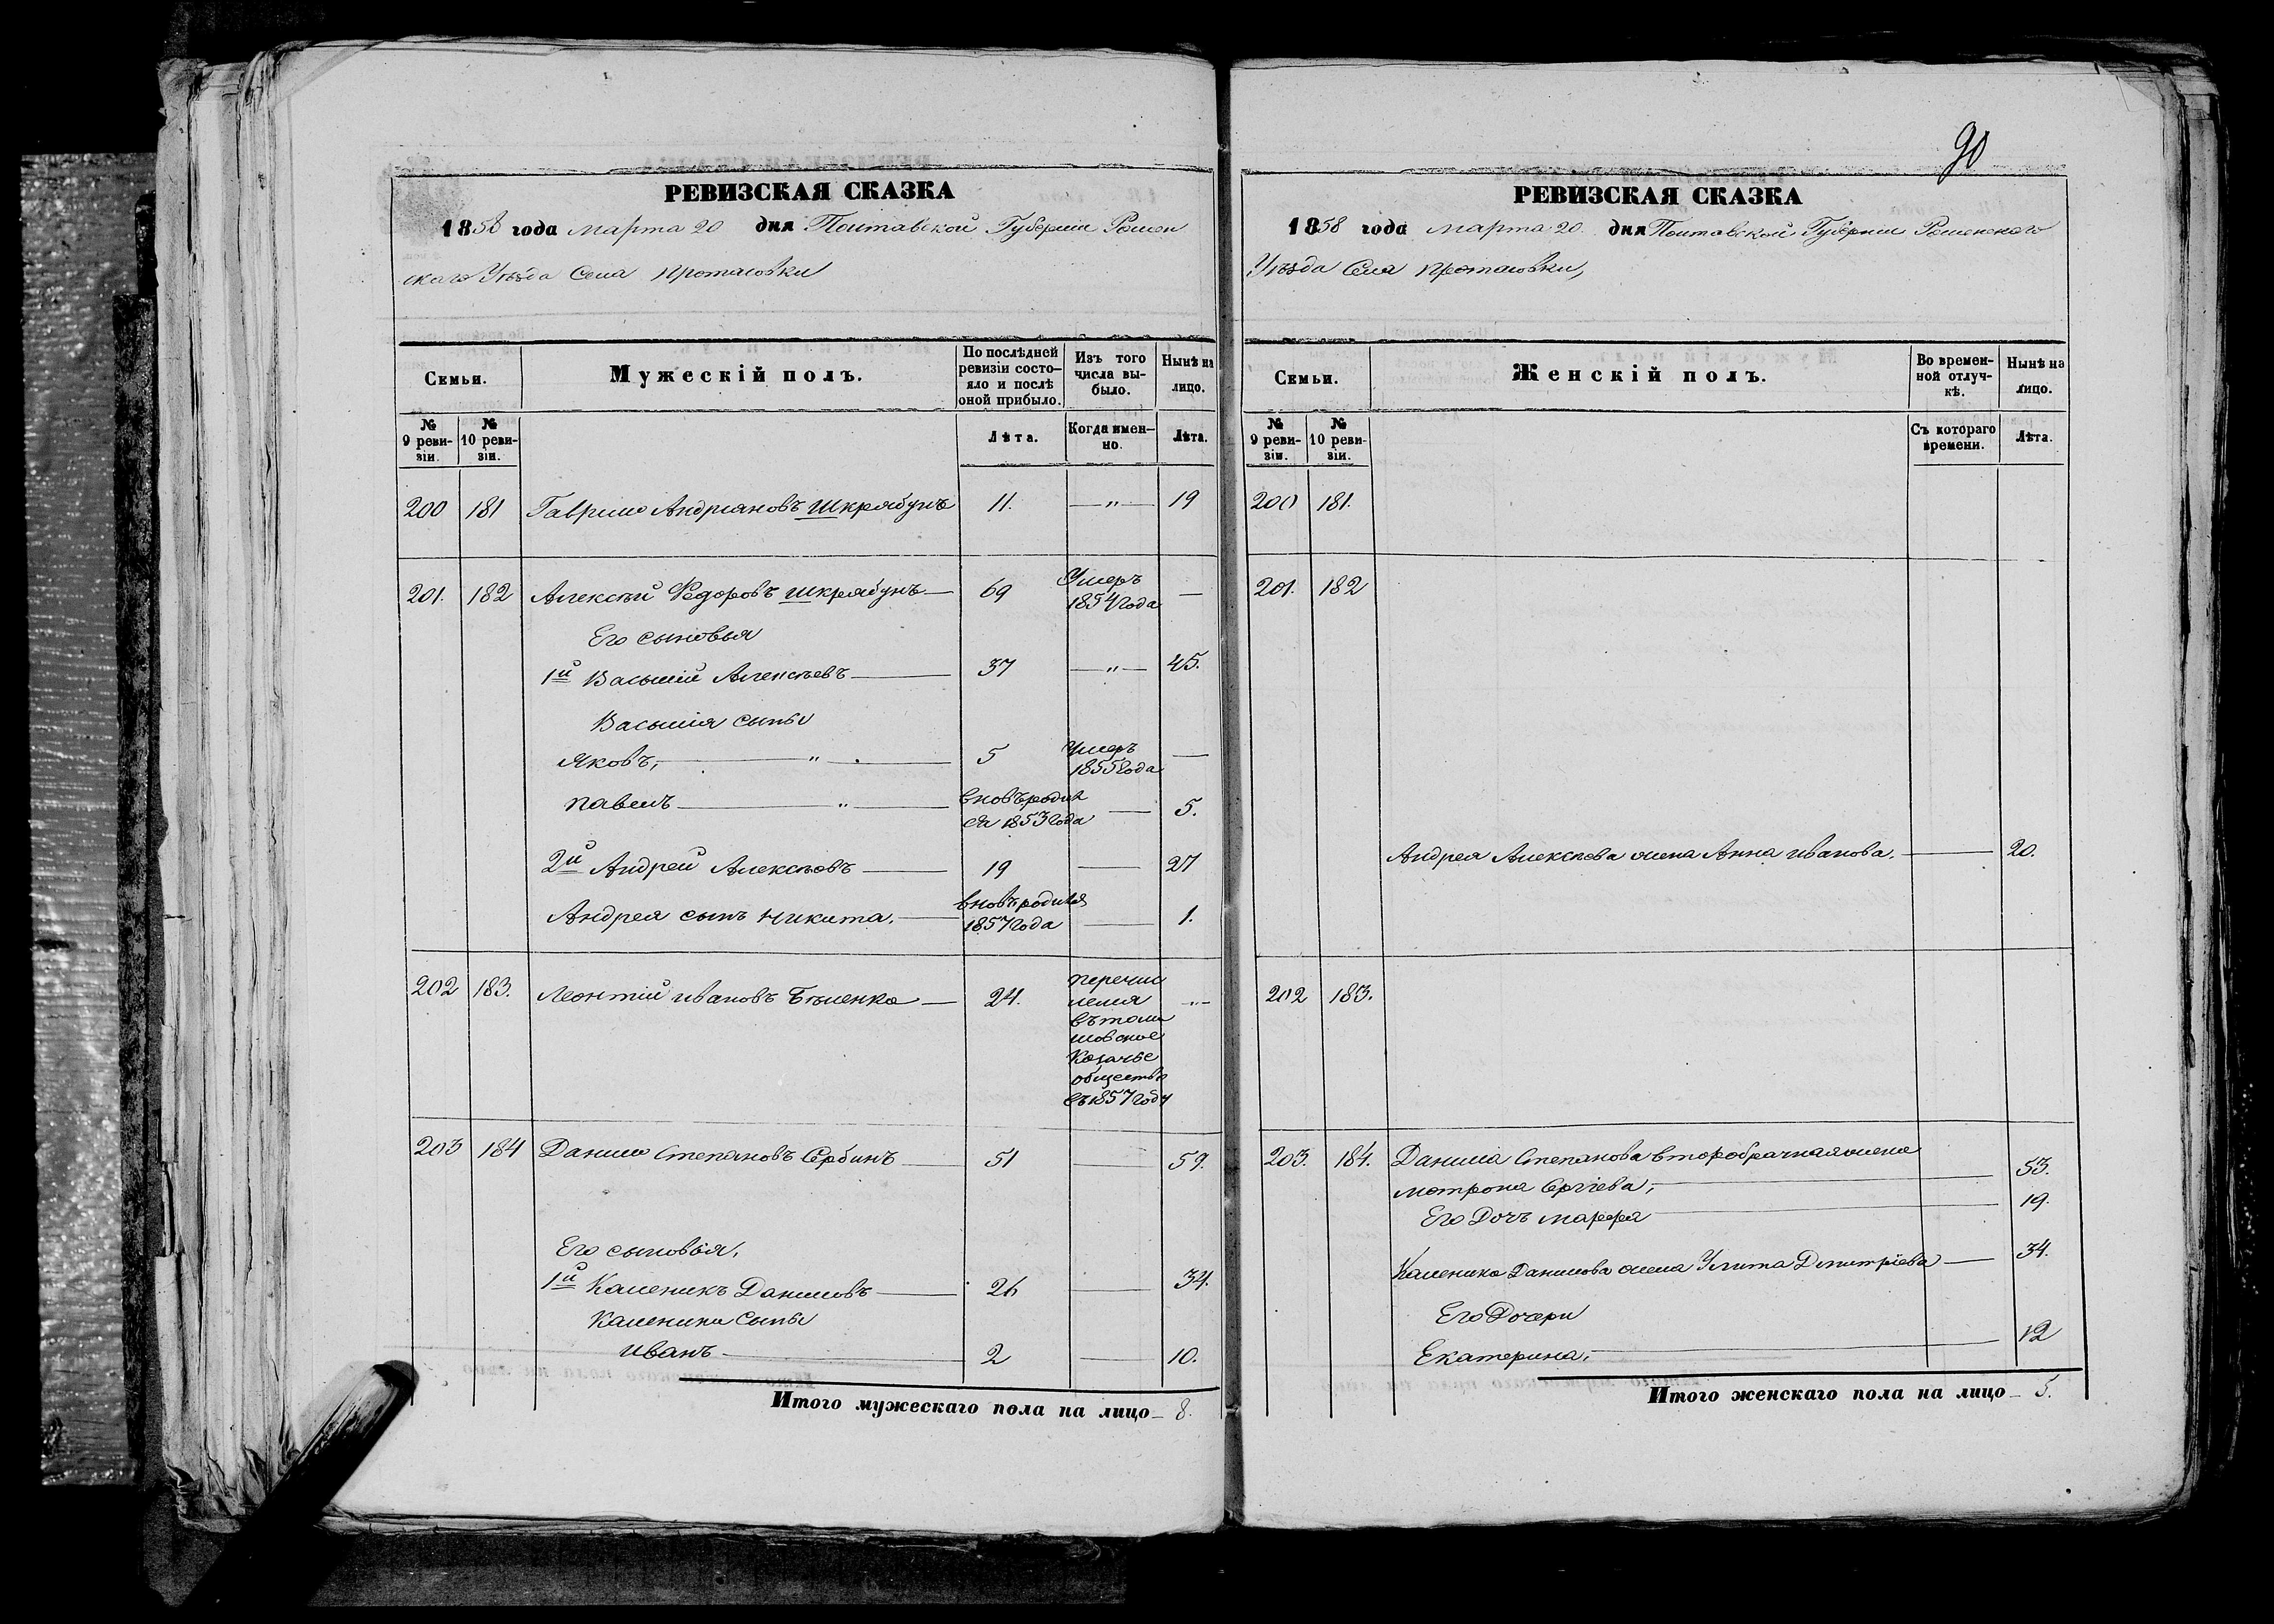 РЕВИЗСКАЯ СКАЗКА
1858 года марта 20 дня Полтавской Губернии Ромен
скаго Уѣзда Села Протасовки
Семьи.
Мужескій полъ.
По послѣдней ревизіи состояло и послѣ оной прибыло.
Изъ того числа выбыло.
Нынѣ на лицо.
№ 9 ревизіи.
№ 10 ревизіи.
Лѣта.
Когда именно.
Лѣта.
200 181 Гаврило Андріяновъ Шкрябунъ 11. — " — 19
201. 182 Алексѣй Федоровъ Шкрябунъ — 69 Умеръ 1854 года —
Его сыновья
1й Василій Алексѣевъ — 37 — " — 45.
Василія сыны
Яковъ, — " — 5 Умеръ 1855 года —
Павелъ — " — вновь родил ся 1853 года — 5.
2й Андрей Алексѣевъ — 19 — 27
Андрея сынъ Никита. — вновь родился 1857 года — 1.
202 183. Леонтій Ивановъ Бѣленко — 24. перечис
ленъ
въ
Козачье
общество
съ 1857 году
203 184 Данило Степановъ Сербинъ — 51 — 59.
Его сыновья,
1й Каленикъ Даниловъ — 26 — 34.
Каленика сыны
Иванъ — 2 — 10.
Итого мужескаго пола на лицо — 8.
90
РЕВИЗСКАЯ СКАЗКА
1858 года марта 20 дня Полтавской Губернии Роменскаго
Уѣзда Села Протасовки,
Семьи.
Женскій полъ.
Во временной отлучкѣ.
Нынѣ на лицо.
№ 9 ревизіи.
№ 10 ревизіи.
Съ котораго времени.
Лѣта.
200 181.
201. 182
Андрея Алексѣева жена Анна Иванова. — 20.
202 183.
203. 184. Данила Степанова второбрачная жена
Мотрона Сергіева, — 53.
Его Дочь Марфа — 19.
Каленика Данилова жена Улита Дмитріева — 34.
Его Дочери
Екатерина, — 12
Итого женскаго пола на лицо — 5.